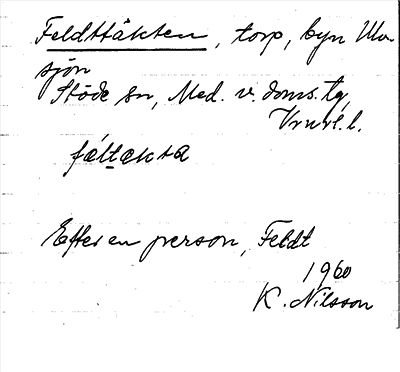 Feldttäkten, torp, byn Ulv-
sjön
Stöde sn, Med. v. doms. tg,
Vrnrl. l.
fæltækta
Efter en person, Feldt
1960
K. Nilsson